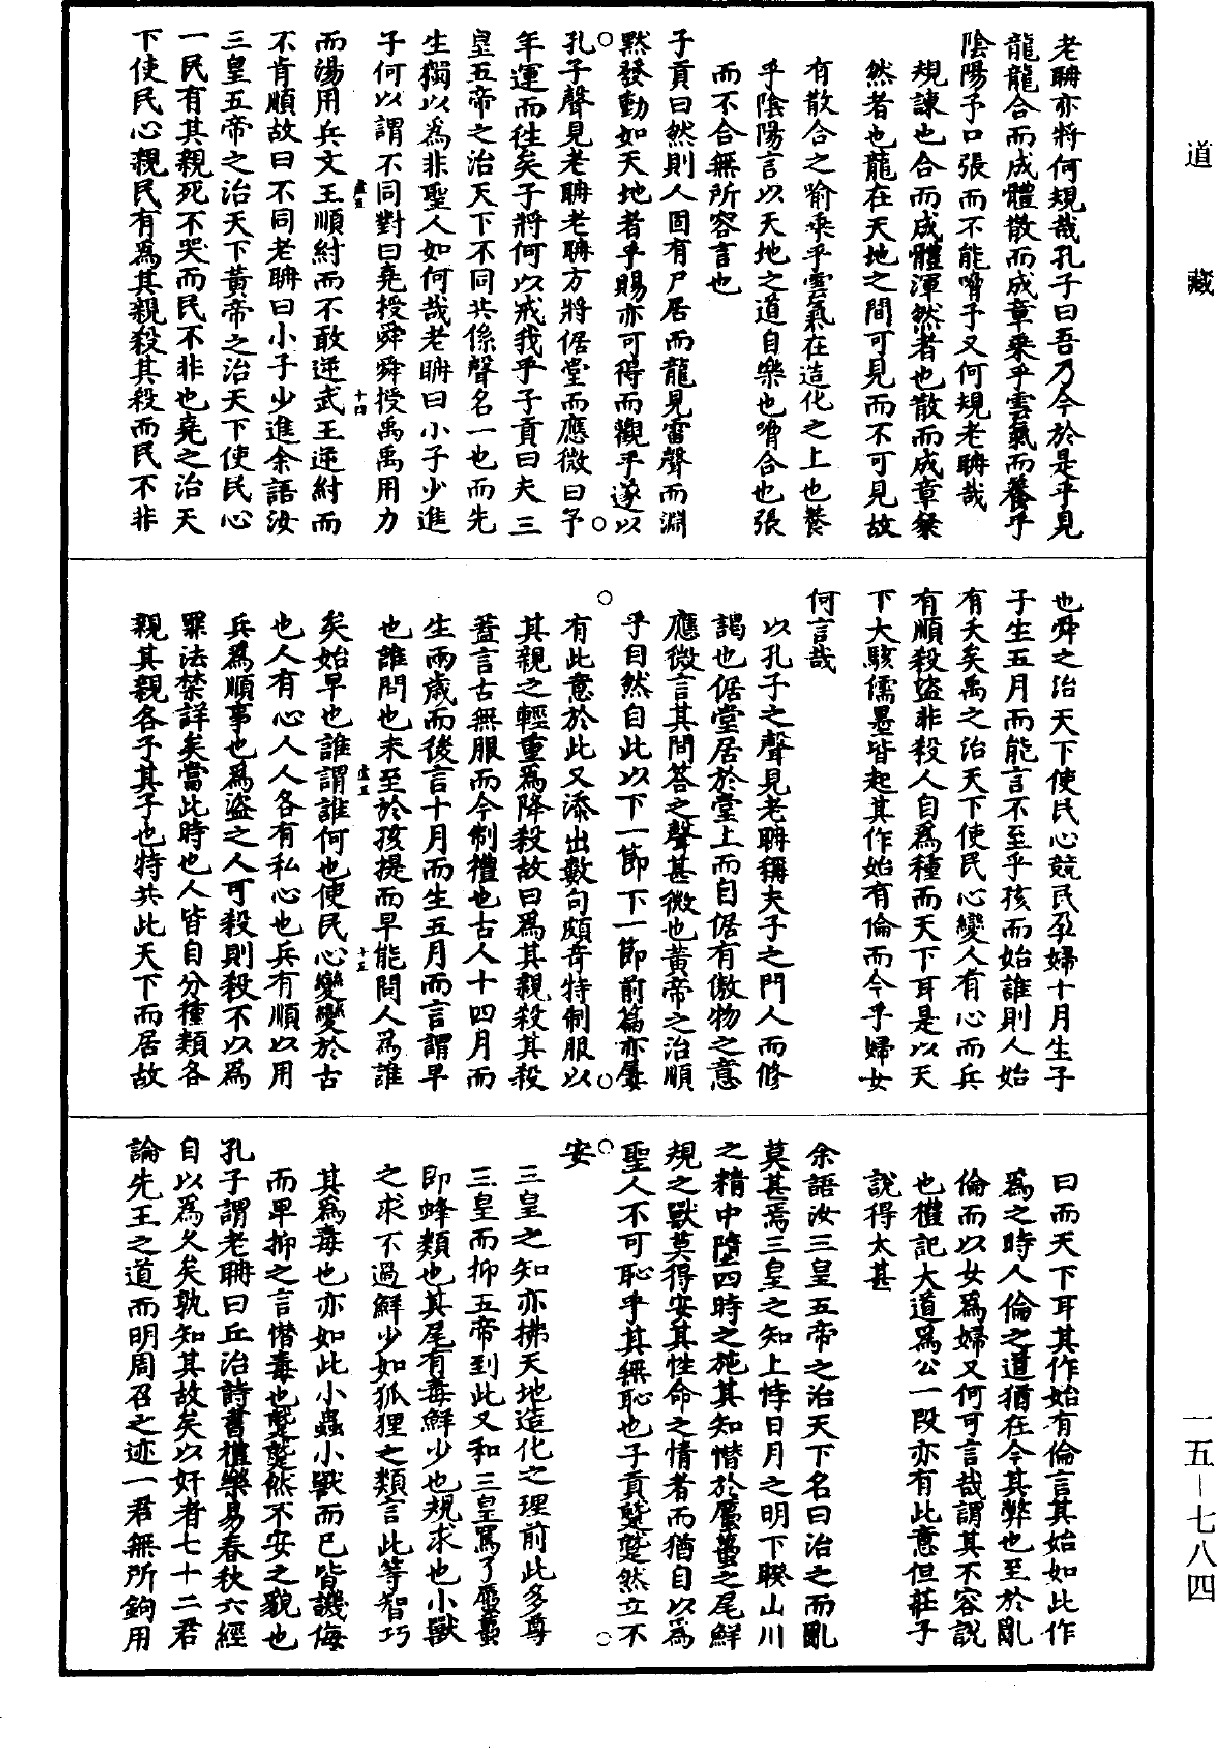 道藏
老聃亦將何規哉孔子曰吾乃今於是乎見
龍龍合而成體散而成章乘乎雲氣而養乎
陰陽予口張而不能嗋予又何規老聃哉
規諫也合而成體渾然者也散而成章粲
然者也龍在天地之間可見而不可見故
有散合之喻乘乎雲氣在造化之上也養
乎陰陽言以天地之道自樂也嗋合也張
而不合無所容言也
子貢曰然則人固有尸居而龍見雷聲而淵
默發動如天地者乎賜亦可得而觀乎遂以
孔子聲見老聃老聃方將倨堂而應微曰予
年運而往矣子將何以戒我乎子貢曰夫三
皇五帝之治天下不同其係聲名一也而先
生獨以為非聖人如何哉老聃曰小子少進
子何以謂不同對曰堯授舜舜授禹禹用力
虛五
十四
而湯用兵文王順紂而不敢逆武王逆紂而
不肯順故曰不同老聃曰小子少進余語汝
三皇五帝之治天下黃帝之治天下使民心
一民有其親死不哭而民不非也堯之治天
下使民心親民有為其親殺其殺而民不非
也舜之治天下使民心競民孕婦十月生子
子生五月而能言不至乎孩而始誰則人始
有夭矣禹之治天下使民心變人有心而兵
有順殺盜非殺人自為種而天下耳是以天
下大駭儒墨皆起其作始有倫而今乎婦女
何言哉
以孔子之聲見老聃稱夫子之門人而修
謁也倨堂居於堂上而自倨有傲物之意
應微言其問答之聲甚微也黃帝之治順
乎自然自此以下一節下一節前篇亦屢
有此意於此又添出數句頗奇特制服以
其親之輕重為降殺故曰為其親殺其殺
蓋言古無服而今制禮也古人十四月而
生兩歲而後言十月而生五月而言謂早
也誰問也未至於孩提而早能問人為誰
虛五
十五
矣始早也誰謂誰何也使民心變變於古
也人有心人人各有私心也兵有順以用
兵為順事也為盜之人可殺則殺不以為
罪法禁詳矣當此時也人皆自分種類各
親其親各子其子也特共此天下而居故
曰而天下耳其作始有倫言其始如此作
為之時人倫之道猶在今其弊也至於亂
倫而以女為婦又何可言哉謂其不容說
也禮記大道為公一段亦有此意但莊子
說得太甚
余語汝三皇五帝之治天下名曰治之而亂
莫甚焉三皇之知上悖日月之明下睽山川
之精中墮四時之施其知憯於蠆之尾鮮
規之獸莫得安其性命之情者而猶自以為
聖人不可恥乎其無恥也子貢蹵蹵然立不
安
三皇之知亦拂天地造化之理前此多尊
三皇而抑五帝到此又和三皇罵了蠆
即蜂類也其尾有毒鮮少也規求也小獸
之求不過鮮少如狐狸之類言此等智巧
其為毒也亦如此小蟲小獸而已皆譏侮
而卑抑之言憯毒也蹵蹵然不安之貌也
孔子謂老聃曰丘治詩書禮樂易春秋六經
自以為久矣孰知其故矣以奸者七十二君
論先王之道而明周召之迹一君無所鉤用
一五-七八四